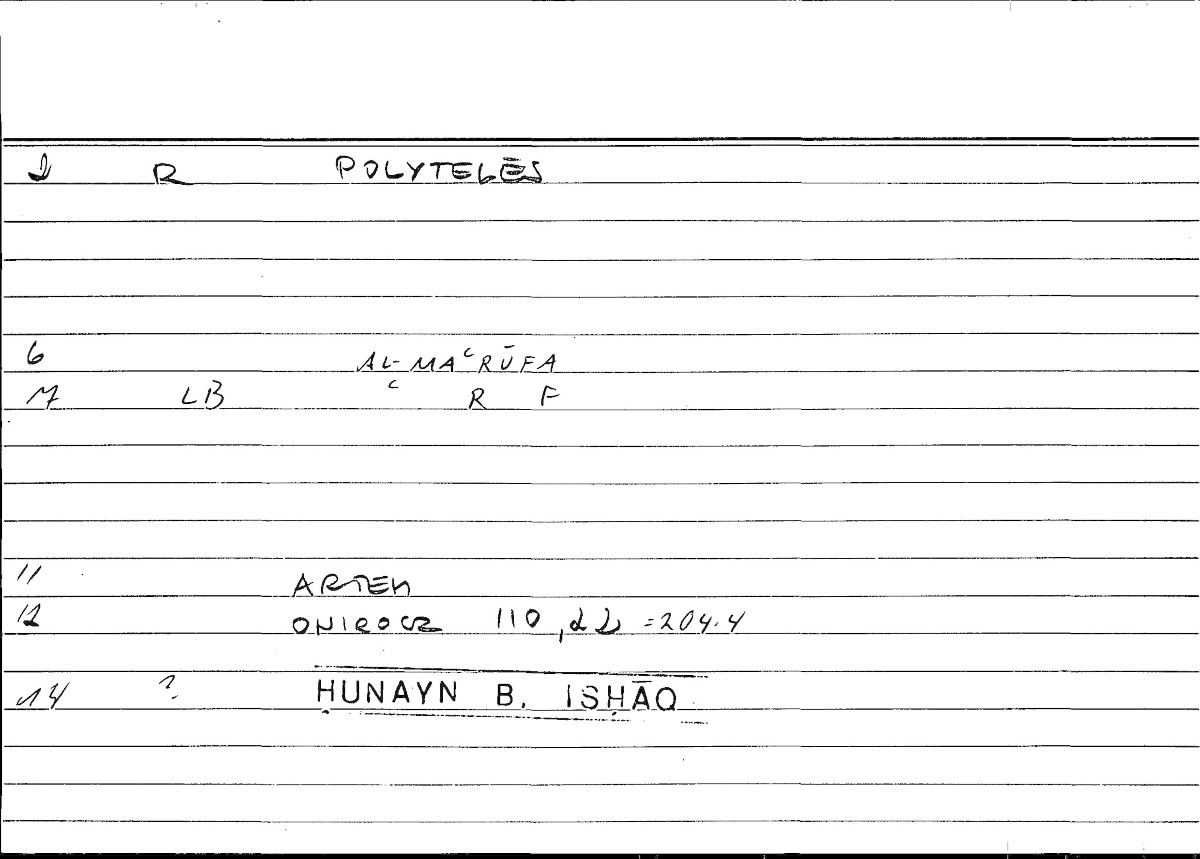 2 R POLYTELĒS
6 AL-MAʿRŪFA
7 LB ʿ R F
11 ARTEM
12 ONIROCR 110,22 =204.4
14 ? ḤUNAYN B. ISḤĀQ